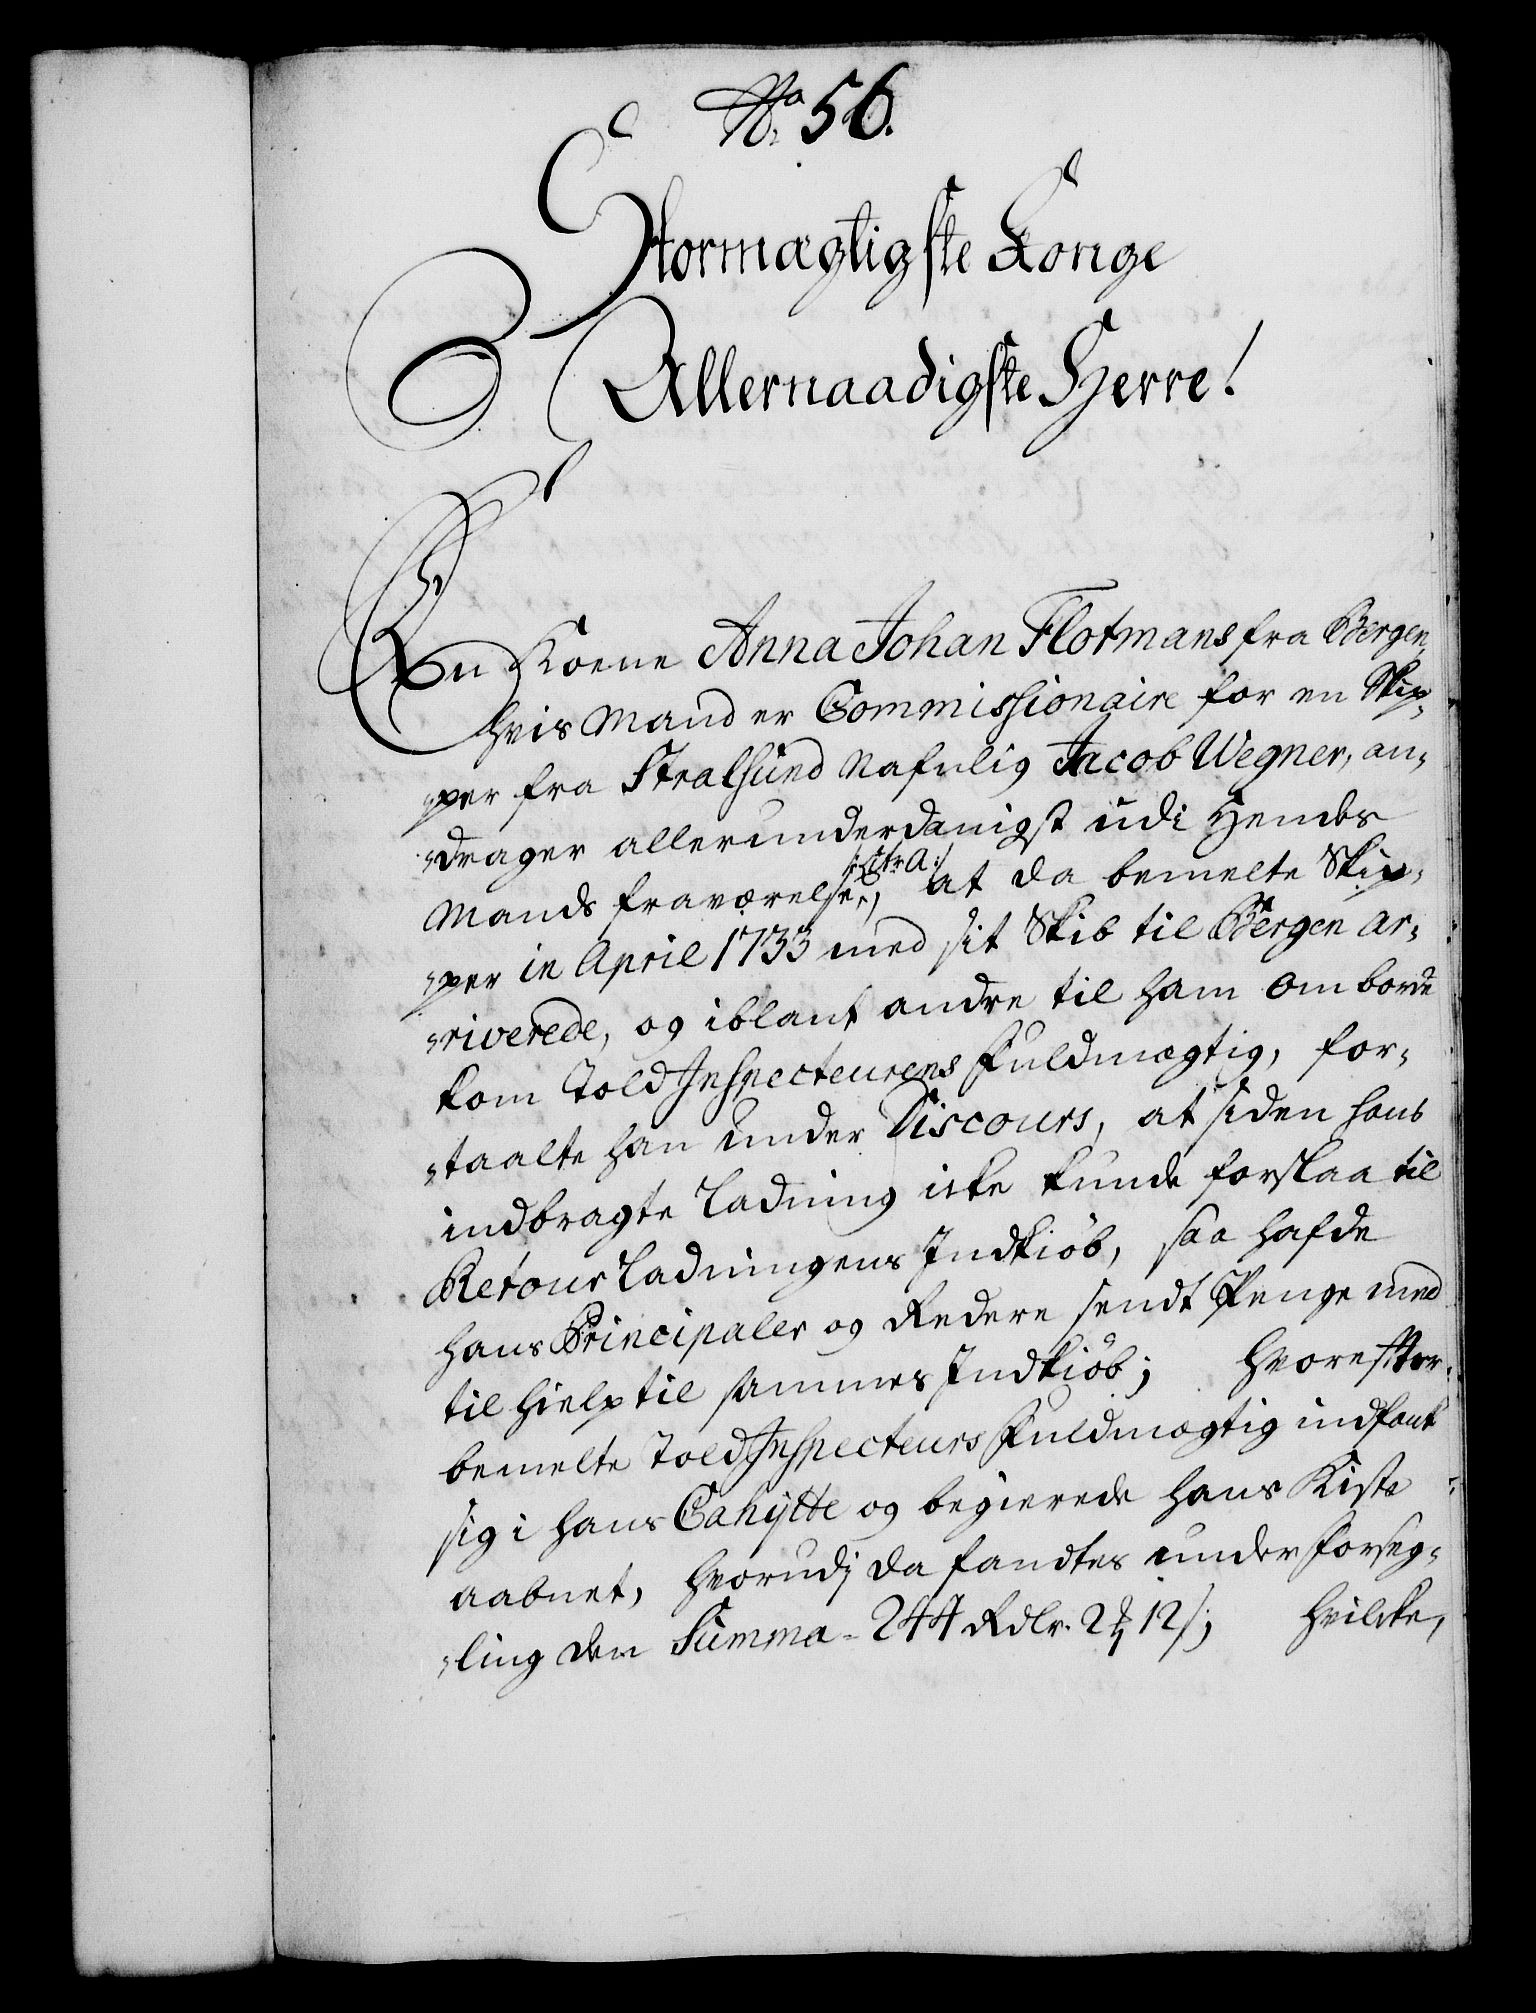 No 56.
Stormægtigste Konge
Allernaadigste Herre!
En Kone Anna Johan Flotmans fra Bergen,
hvis Mand er Commissionaire for en Skip-
per fra Stralsund nafnlig Jacob Wegner, an-
drager allerunderdanigst udi hendes
Mands fraværelse, /:Litr A:/ at da bemelte Skip-
per in April 1733 med sit Skib til Bergen ar-
riverede, og iblant andre til ham om borde
kom Told Inspecteurens Fuldmægtig, for-
taalte han under Discours, at siden hans
indbragte Ladning icke kunde forslaa til
Retour Ladningens Indkiöb, saa hafde
hans Principaler og Redere sendt Penge med
til hielp til sammes Indkiöb; hvorefter
bemelte Told Inspecteurs Fuldmægtig indfant
sig i hans Cahytte og begierede hans Kiste
aabnet, hvorudj da fandtes under forseg-
ling den Summa - 244 Rdlr. 2 ꝟ 12 s; hvilcke,